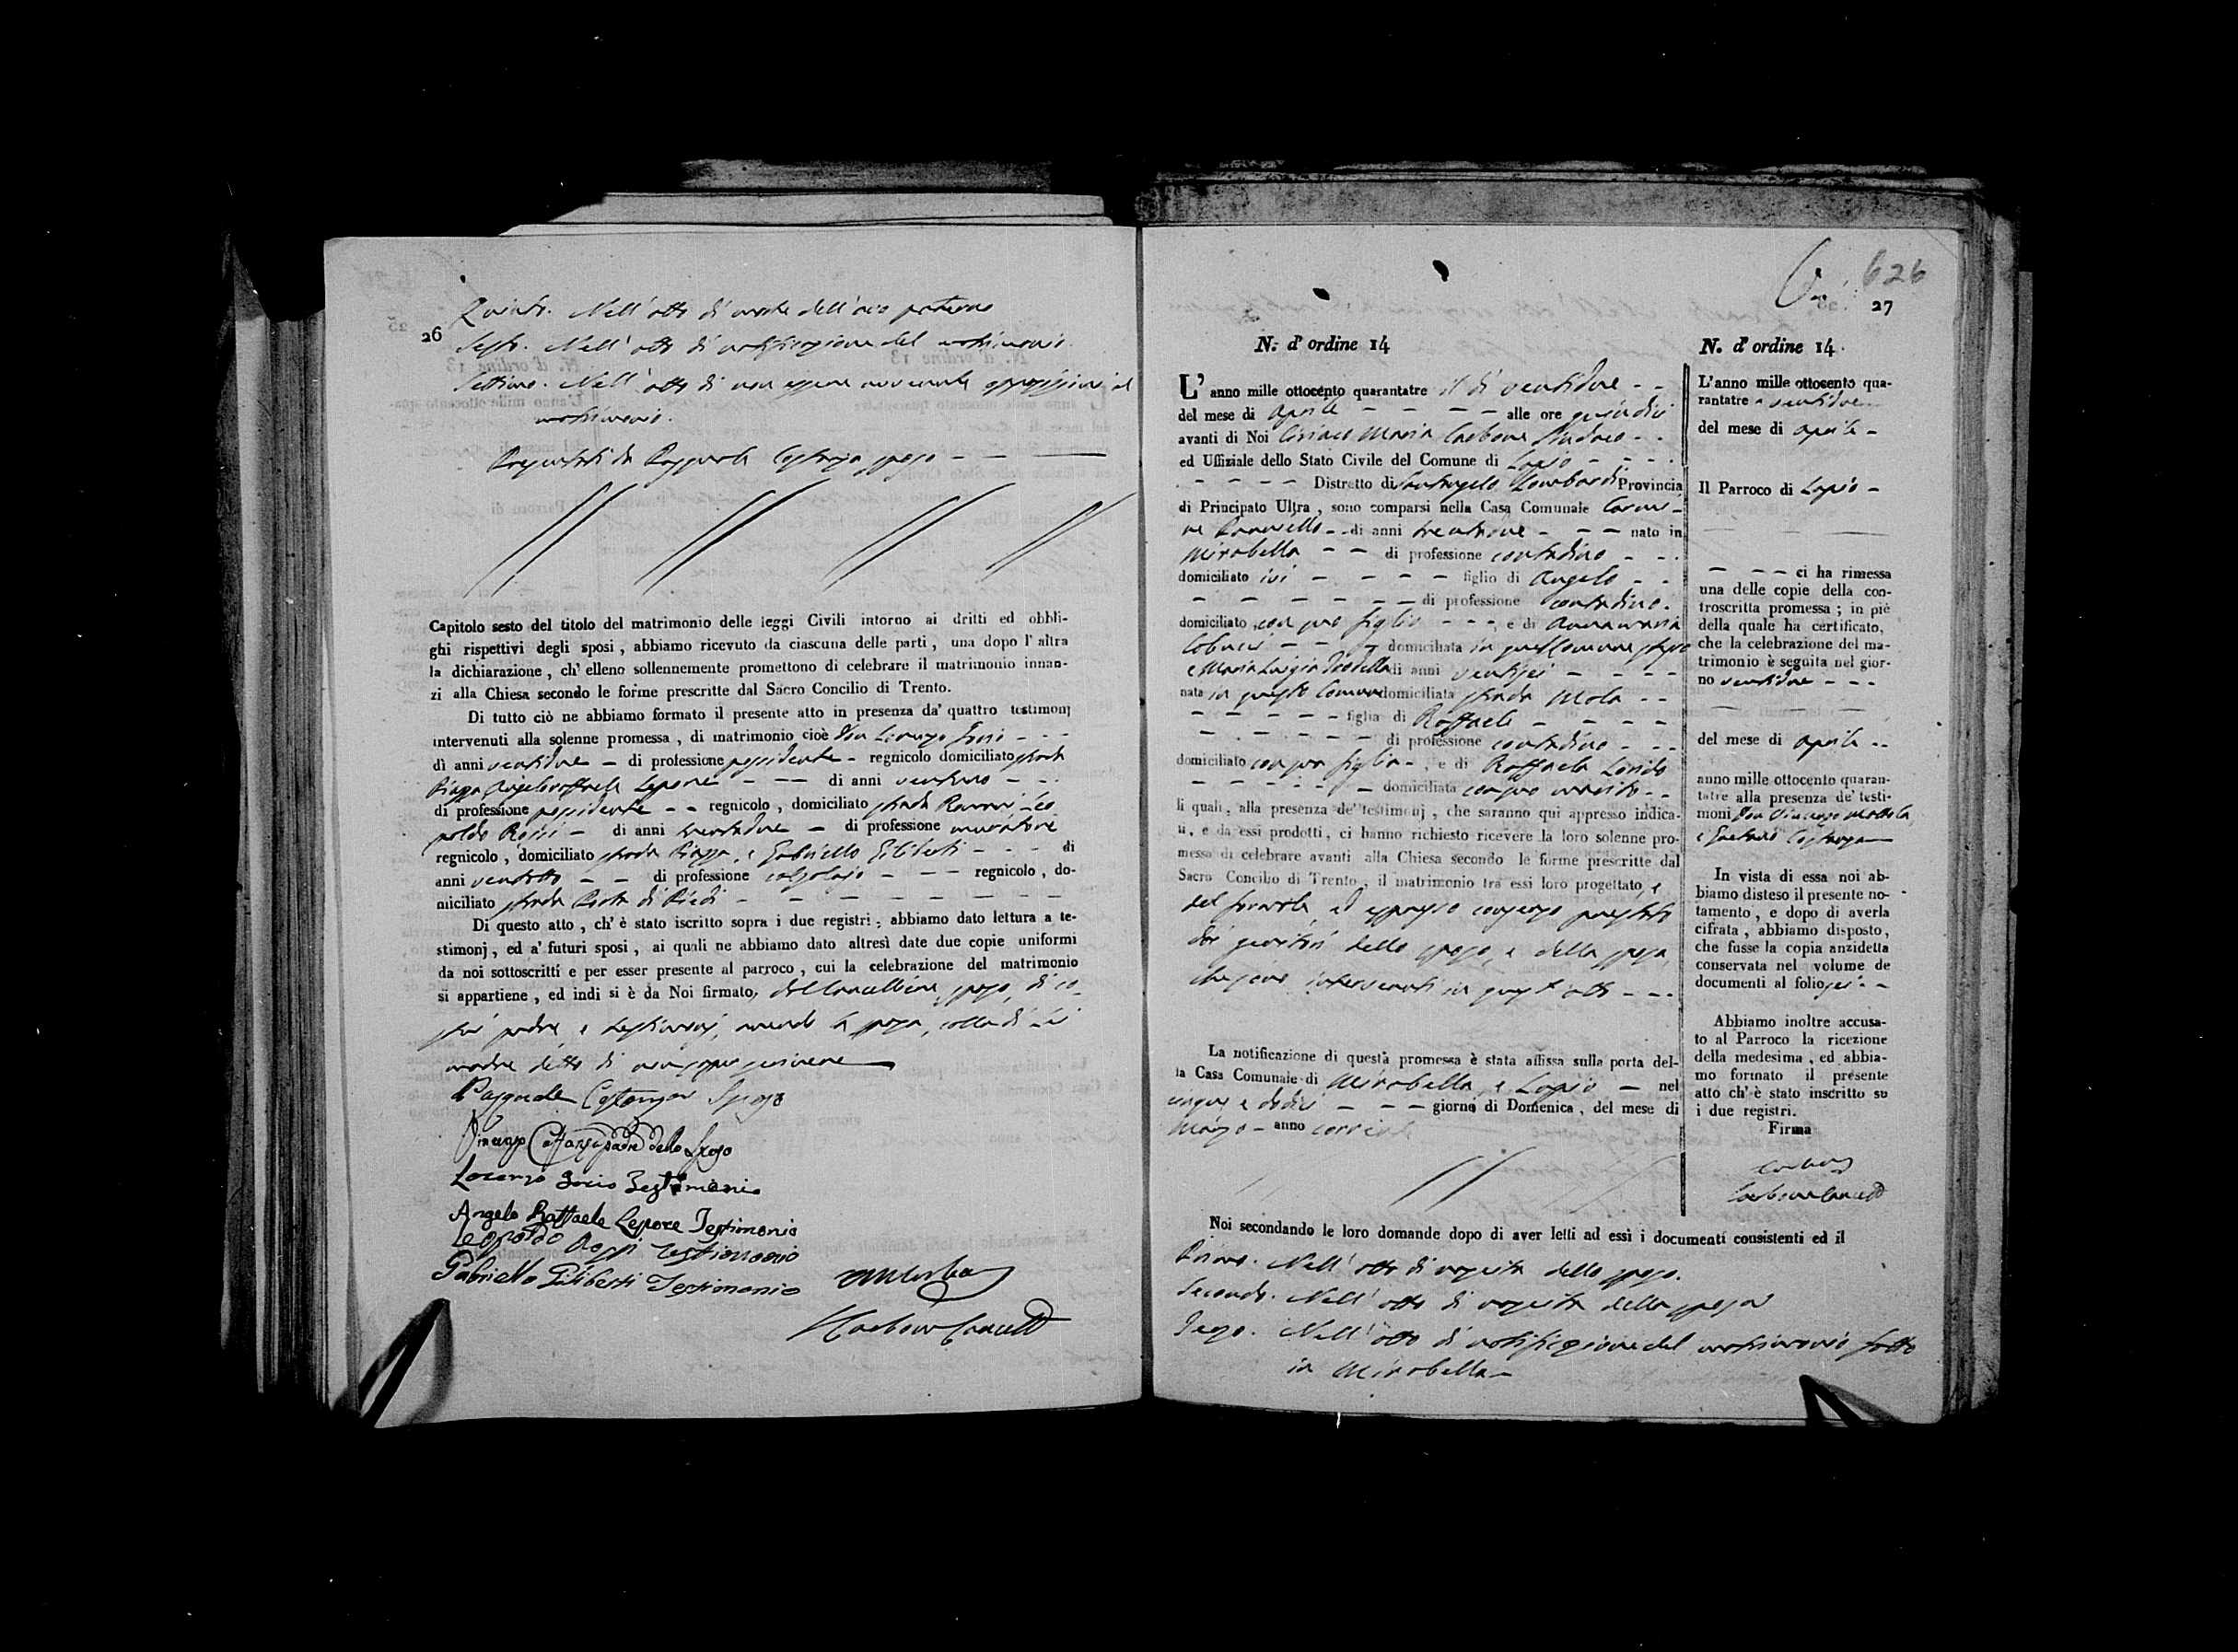 26
Quinto. Nell'atto di morte dell'avo paterno
Sesto. Nell'atto di notificazione del matrimonio.
Settimo. Nell'atto di non essere opposizioni al
matrimonio.
Presentati da Pasquale Costanza sposo
Capitolo sesto del titolo del matrimonio delle leggi Civili intorno ai dritti ed obbli-
ghi rispettivi degli sposi, abbiamo ricevuto da ciascuna delle parti, una dopo l'altra
la dichiarazione, ch'elleno sollennemente promettono di celebrare il matrimonio innan-
zi alla Chiesa secondo le forme prescritte dal Sacro Concilio di Trento.
Di tutto ciò ne abbiamo formato il presente atto in presenza da' quattro testimonj
intervenuti alla solenne promessa, di matrimonio cioè Don Lorenzo
di anni ventidue — di professione possidente — regnicolo domiciliato strada
Piazza Angeloraffaele Lepore — — di anni
di professione possidente — — regnicolo, domiciliato strada Leo
poldo Rossi — di anni trentadue — di professione muratore
regnicolo, domiciliato strada Piazza, e Gabriello Giliberti — — di
anni ventotto — — di professione calzolajo — — — regnicolo, do-
miciliato strada di Piedi
Di questo atto, ch'è stato iscritto sopra i due registri, abbiamo dato lettura a te-
stimonj, ed a' futuri sposi, ai quali ne abbiamo dato altresì date due copie uniformi
da noi sottoscritti e per esser presente al parroco, cui la celebrazione del matrimonio
si appartiene, ed indi si è da Noi firmato, dal Cancelliere, sposo, di co-
stui padre, e testimonj, avendo la sposa, colla di lei
madre detto di non saper scrivere
Pasquale Costanza Sposo
padre dello Sposo
Testimonio
Angelo Raffaele Lepore Testimonio
Leopoldo Rossi Testimonio
Gabriello Giliberti Testimonio
626
27
N. d'ordine 14
L'anno mille ottocento quarantatre il dì ventidue
del mese di Aprile — — — — alle ore quindici
avanti di Noi Ciriaco Maria Carbone Sindaco
ed Uffiziale dello Stato Civile del Comune di Lapio
Distretto di Santangelo Lombardi Provincia
di Principato Ultra, sono comparsi nella Casa Comunale Carmi-
ne — di anni trentadue — — — nato in
Mirabella — — di professione contadino
domiciliato ivi — — — — figlio di Angelo
di professione contadino.
domiciliato con suo figlio — — — e di Annamaria
— — domiciliata in quel comune stesso
e Maria Luigia di anni ventisei
nata in questo Comune domiciliata strada Mola
figlia di Raffaele
di professione contadino
domiciliato con sua figlia —, e di Raffaela
domiciliata con suo marito
li quali, alla presenza de' testimonj, che saranno qui appresso indica-
ti, e da essi prodotti, ci hanno richiesto ricevere la loro solenne pro-
messa di celebrare avanti alla Chiesa secondo le forme prescritte dal
Sacro Concilio di Trento, il matrimonio tra essi loro progettato, e
del formale, ed espresso consenso prestato
dai genitori dello sposo, e della sposa,
che sono intervenuti in quest'atto
La notificazione di questa promessa è stata affissa sulla porta del-
la Casa Comunale di Mirabella, e Lapio — nel
cinque e dodici — — — giorno di Domenica, del mese di
Marzo — anno corrente
Noi secondando le loro domande dopo di aver letti ad essi i documenti consistenti ed il
Primo. Nell'atto di nascita dello sposo.
Secondo. Nell'atto di nascita della sposa
Terzo. Nell'atto di notificazione del matrimonio fatto
in Mirabella
N. d'ordine 14.
L'anno mille ottocento qua-
rantatre a ventidue
del mese di Aprile
Il Parroco di Lapio
— — — ci ha rimessa
una delle copie della con-
troscritta promessa; in piè
della quale ha certificato,
che la celebrazione del ma-
trimonio è seguita nel gior-
no ventidue
del mese di Aprile
anno mille ottocento quaran-
tatre alla presenza de' testi-
moni Don Vincenzo Mottola
e Gaetano Costanza
In vista di essa noi ab-
biamo disteso il presente no-
tamento, e dopo di averla
cifrata, abbiamo disposto,
che fusse la copia anzidetta
conservata nel volume de
documenti al folio sei
Abbiamo inoltre accusa-
to al Parroco la ricezione
della medesima, ed abbia-
mo formato il presente
atto ch'è stato inscritto su
i due registri.
Firma